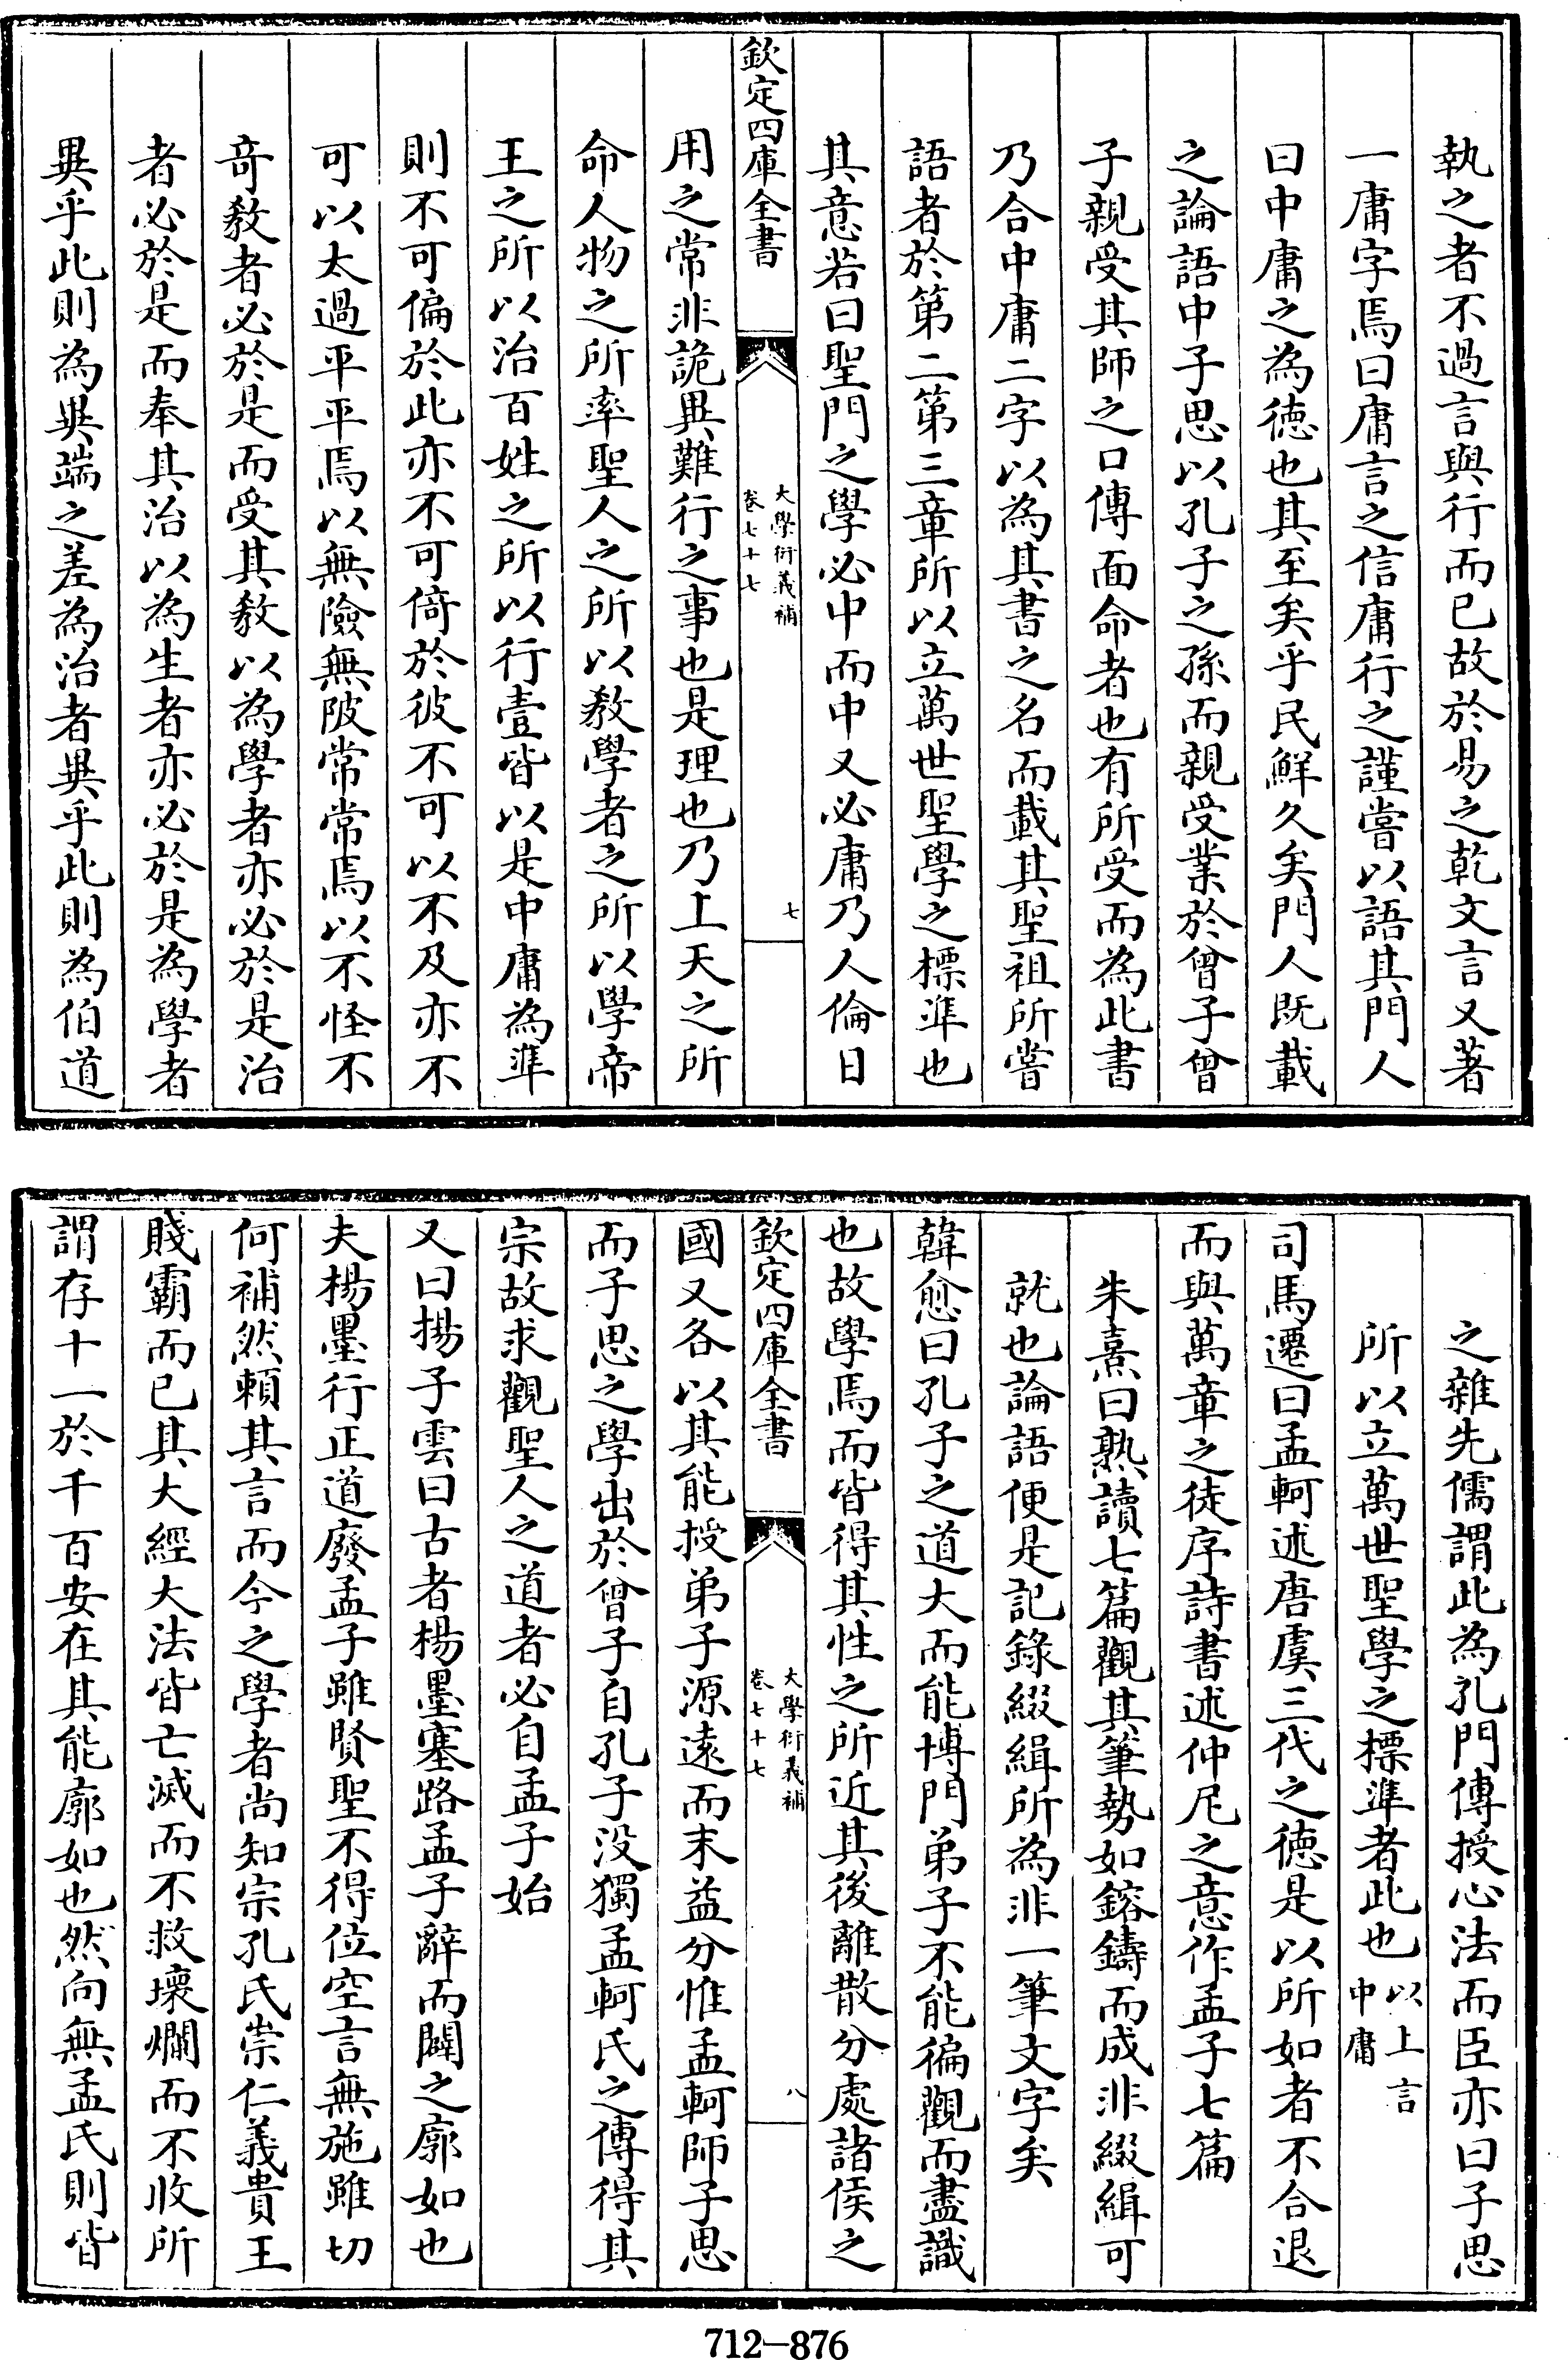 執之者不過言與行而已故於易之乾文言又著
一庸字焉曰庸言之信庸行之謹嘗以語其門人
曰中庸之為徳也其至矣乎民鮮久矣門人既載
之論語中子思以孔子之孫而親受業於曾子曾
子親受其師之口傳面命者也有所受而為此書
乃合中庸二字以為其書之名而載其聖祖所嘗
語者於第二第三章所以立萬世聖學之標準也
其意若曰聖門之學必中而中又必庸乃人倫日
欽定四庫全書
大學衍義補
卷七十七
七
用之常非詭異難行之事也是理也乃上天之所
命人物之所率聖人之所以教學者之所以學帝
王之所以治百姓之所以行壹皆以是中庸為準
則不可偏於此亦不可倚於彼不可以不及亦不
可以太過平平焉以無險無陂常常焉以不怪不
奇教者必於是而受其教以為學者亦必於是治
者必於是而奉其治以為生者亦必於是為學者
異乎此則為異端之差為治者異乎此則為伯道
之雜先儒謂此為孔門傳授心法而臣亦曰子思
所以立萬世聖學之標準者此也以上言
中庸
司馬遷曰孟軻述唐虞三代之徳是以所如者不合退
而與萬章之徒序詩書述仲尼之意作孟子七篇
朱熹曰熟讀七篇觀其筆勢如鎔鑄而成非綴緝可
就也論語便是記錄綴緝所為非一筆文字矣
韓愈曰孔子之道大而能博門弟子不能徧觀而盡識
也故學焉而皆得其性之所近其後離散分處諸侯之
欽定四庫全書
大學衍義補
卷七十七
八
國又各以其能授弟子源遠而末益分惟孟軻師子思
而子思之學出於曾子自孔子沒獨孟軻氏之傳得其
宗故求觀聖人之道者必自孟子始
又曰揚子雲曰古者楊墨塞路孟子辭而闢之廓如也
夫楊墨行正道廢孟子雖賢聖不得位空言無施雖切
何補然賴其言而今之學者尚知宗孔氏崇仁義貴王
賤霸而已其大經大法皆亡滅而不救壞爛而不收所
謂存十一於千百安在其能廓如也然向無孟氏則皆
712-876